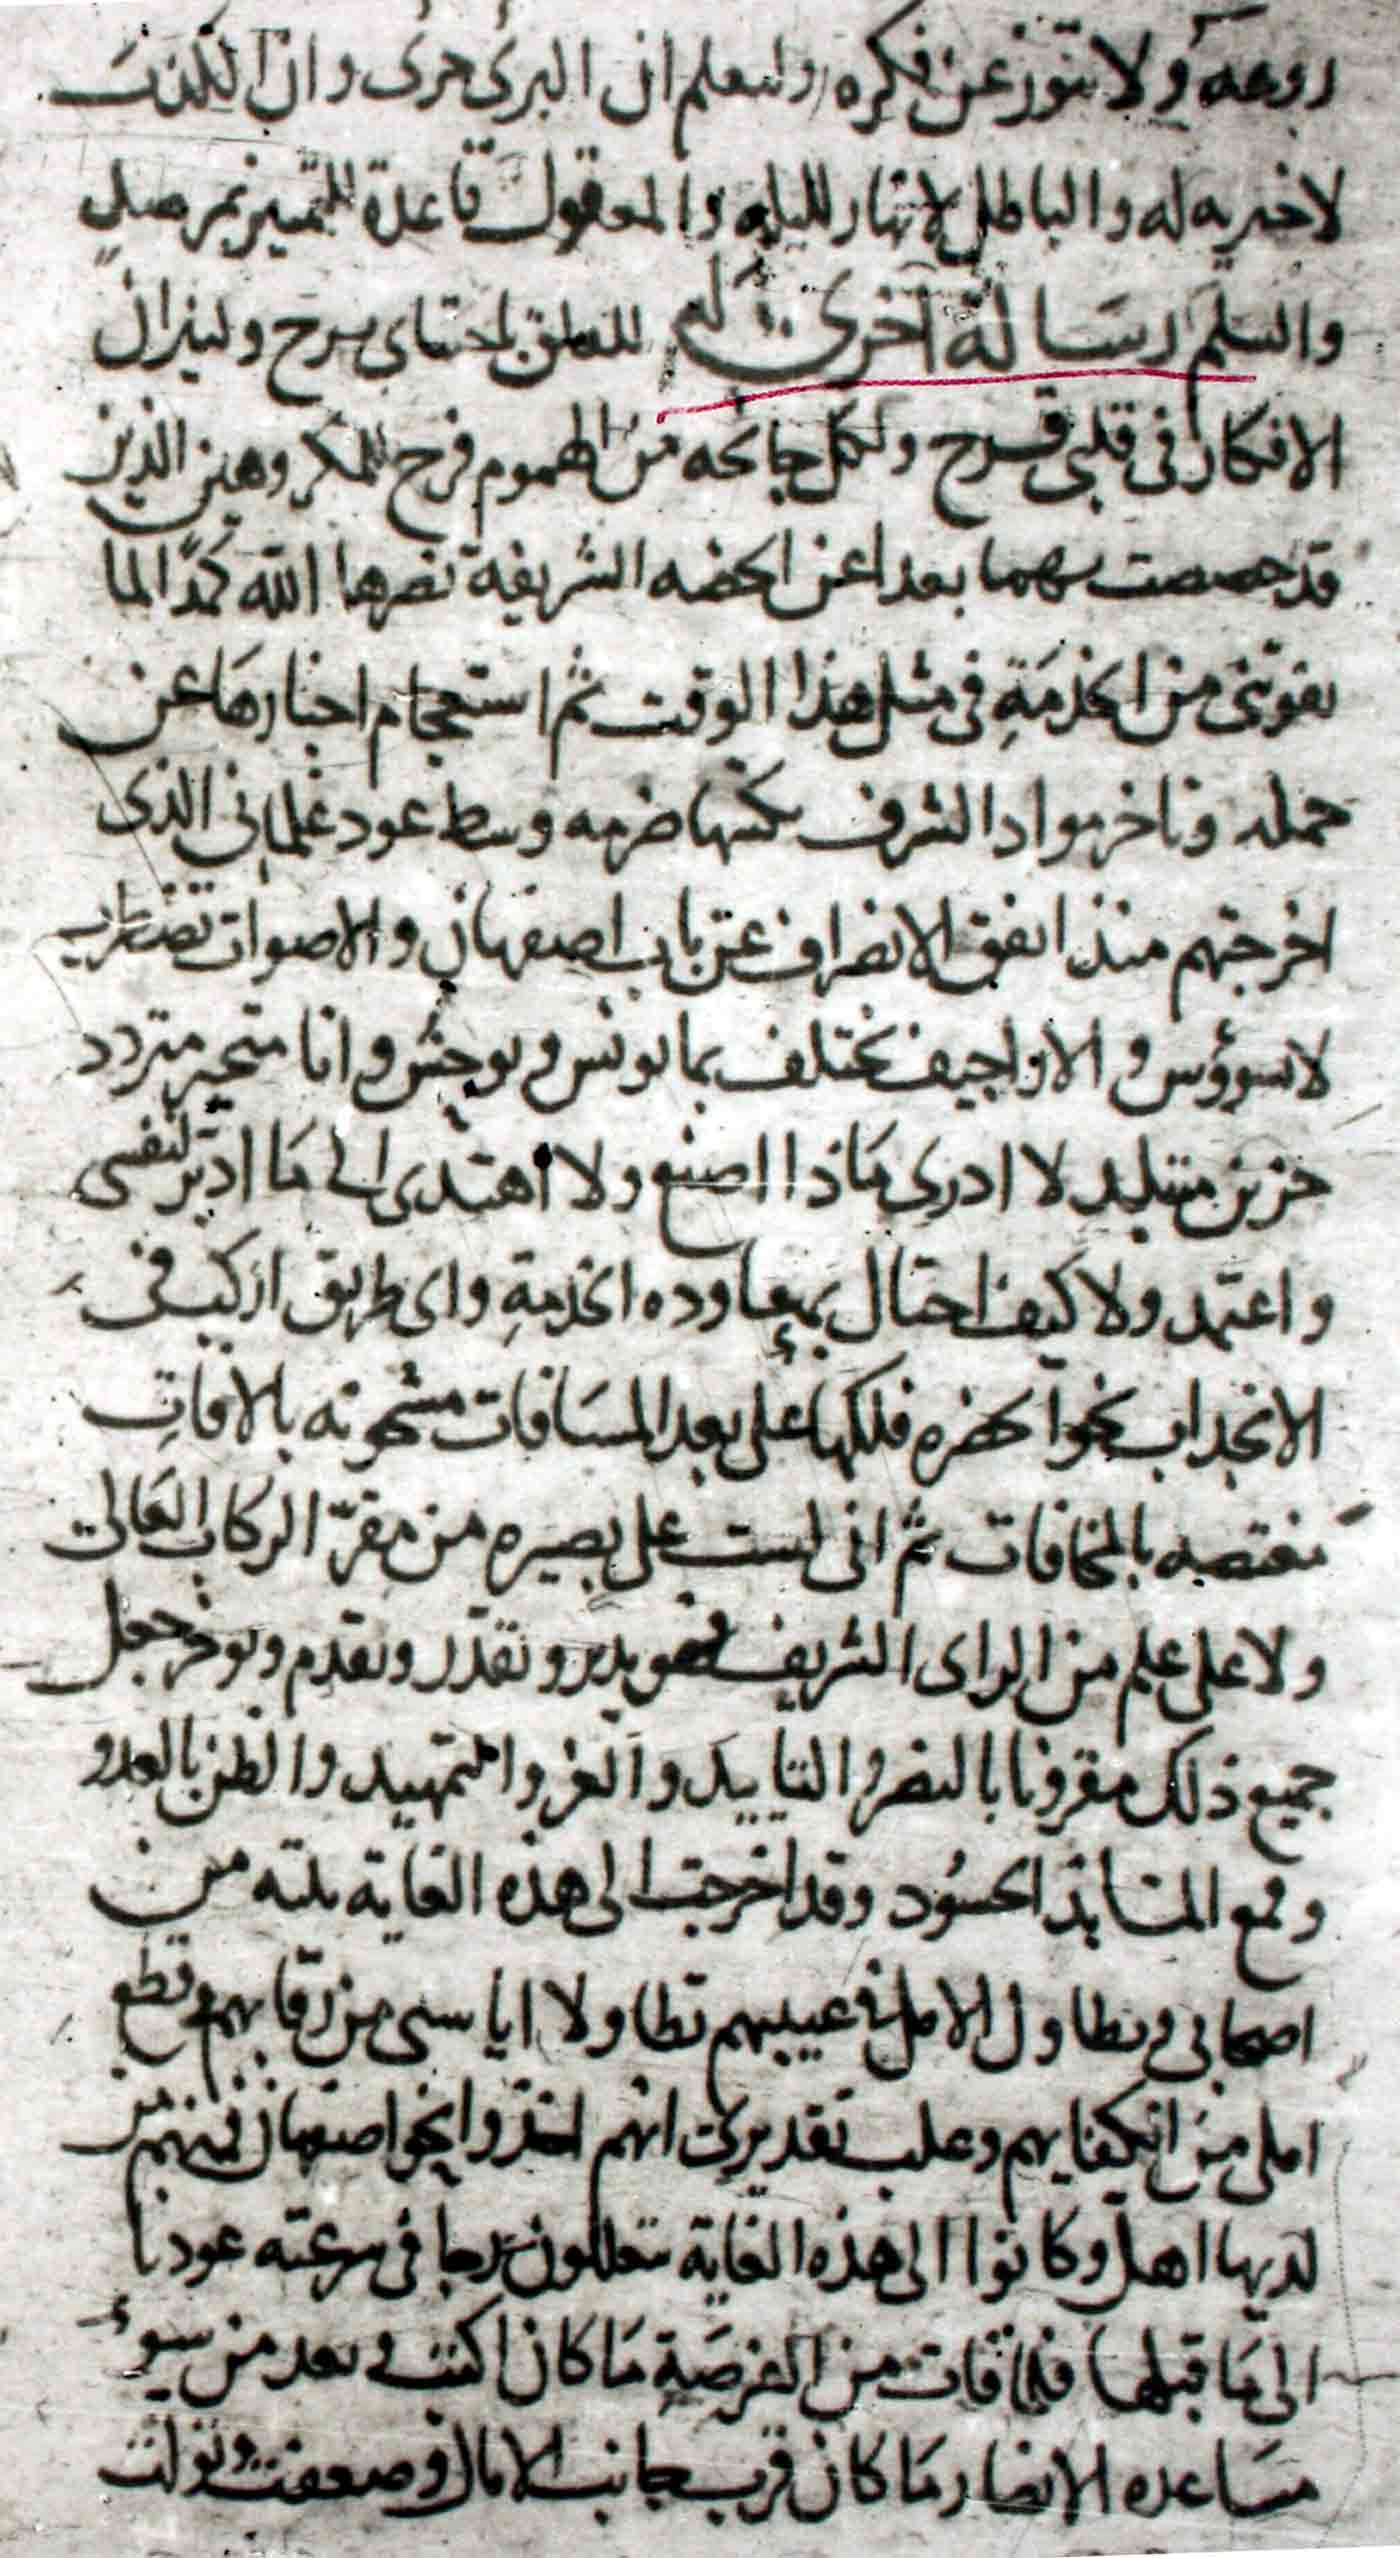 روعه ولا تتوزعن فكره وليعلم ان البرى جرى وان الكذب
لا خير به له والباطل لا نهار لليله والمعقول قاعدة للتمييز
والسلم رسالة اخرى له للقلق باحشاى برح ولنيران
الافكار فى قلبى قرح ولكل جانحه من الهموم فرح للمكر وهين الذين
قد خصصت بهما بعدا عن الحضه الشريفة نضرها الله كمدا لما
يفوتنى من الخدمة فى مثل هذا الوقت ثم استعجام اخبارها عن
جمله وتاخر مواد الشرف وسط عود غلمانى الذى
اخرجتهم منذ اتفق الانصراف عن باب اصفهان والاصوات تضطرب
والاراجيف تختلف بما يونس ويوحش وانا متحير متردد
حزين متبلد لا ادرى ماذا اصنع ولا اهتدى الى ما ادبر لنفسى
واعتمد ولا كيف احتال بمعاوده الخدمة واى طريق اركب فى
الانجذاب نحو الحضره فلكها على بعد المسافات مشحونه بالافات
مغتصه بالمخافات ثم انى لست على بصيره من مقر الركاب العالى
ولا على علم من الراى الشريف فهو يدبر ويقدر ويقدم ويوخر جعل
جميع ذلك مقرونا بالنصر والتاييد والعز والتمهيد والظفر بالعدو
وقمع المنابذ الحسود وقد اخرجت الى هذه الغاية ثلثه من
اصحابى وتطاول الامل فى غيبتهم تطاولا اياسنى من رقابهم وقطع
املى من انكفايهم وغلب تقديرى انهم اخذوا نحو اصفهان فمنهم من
لديها اهل وكانوا الى هذه الغاية يتعللون برجا فى سرعته عودنا
الى ما قبلها فلما فات من الفرصة ما كان اكثب وبعد من سوء
مساعده الانصار ما كان قرب بجانب الامال وضعفت وتولت